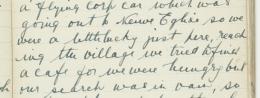 a flying corp car which was
going out to Neuve Eglise so we
were a little lucky just here, reach
ing the village we tried to find
a cafe for we were hungry but
our search was in vain, so